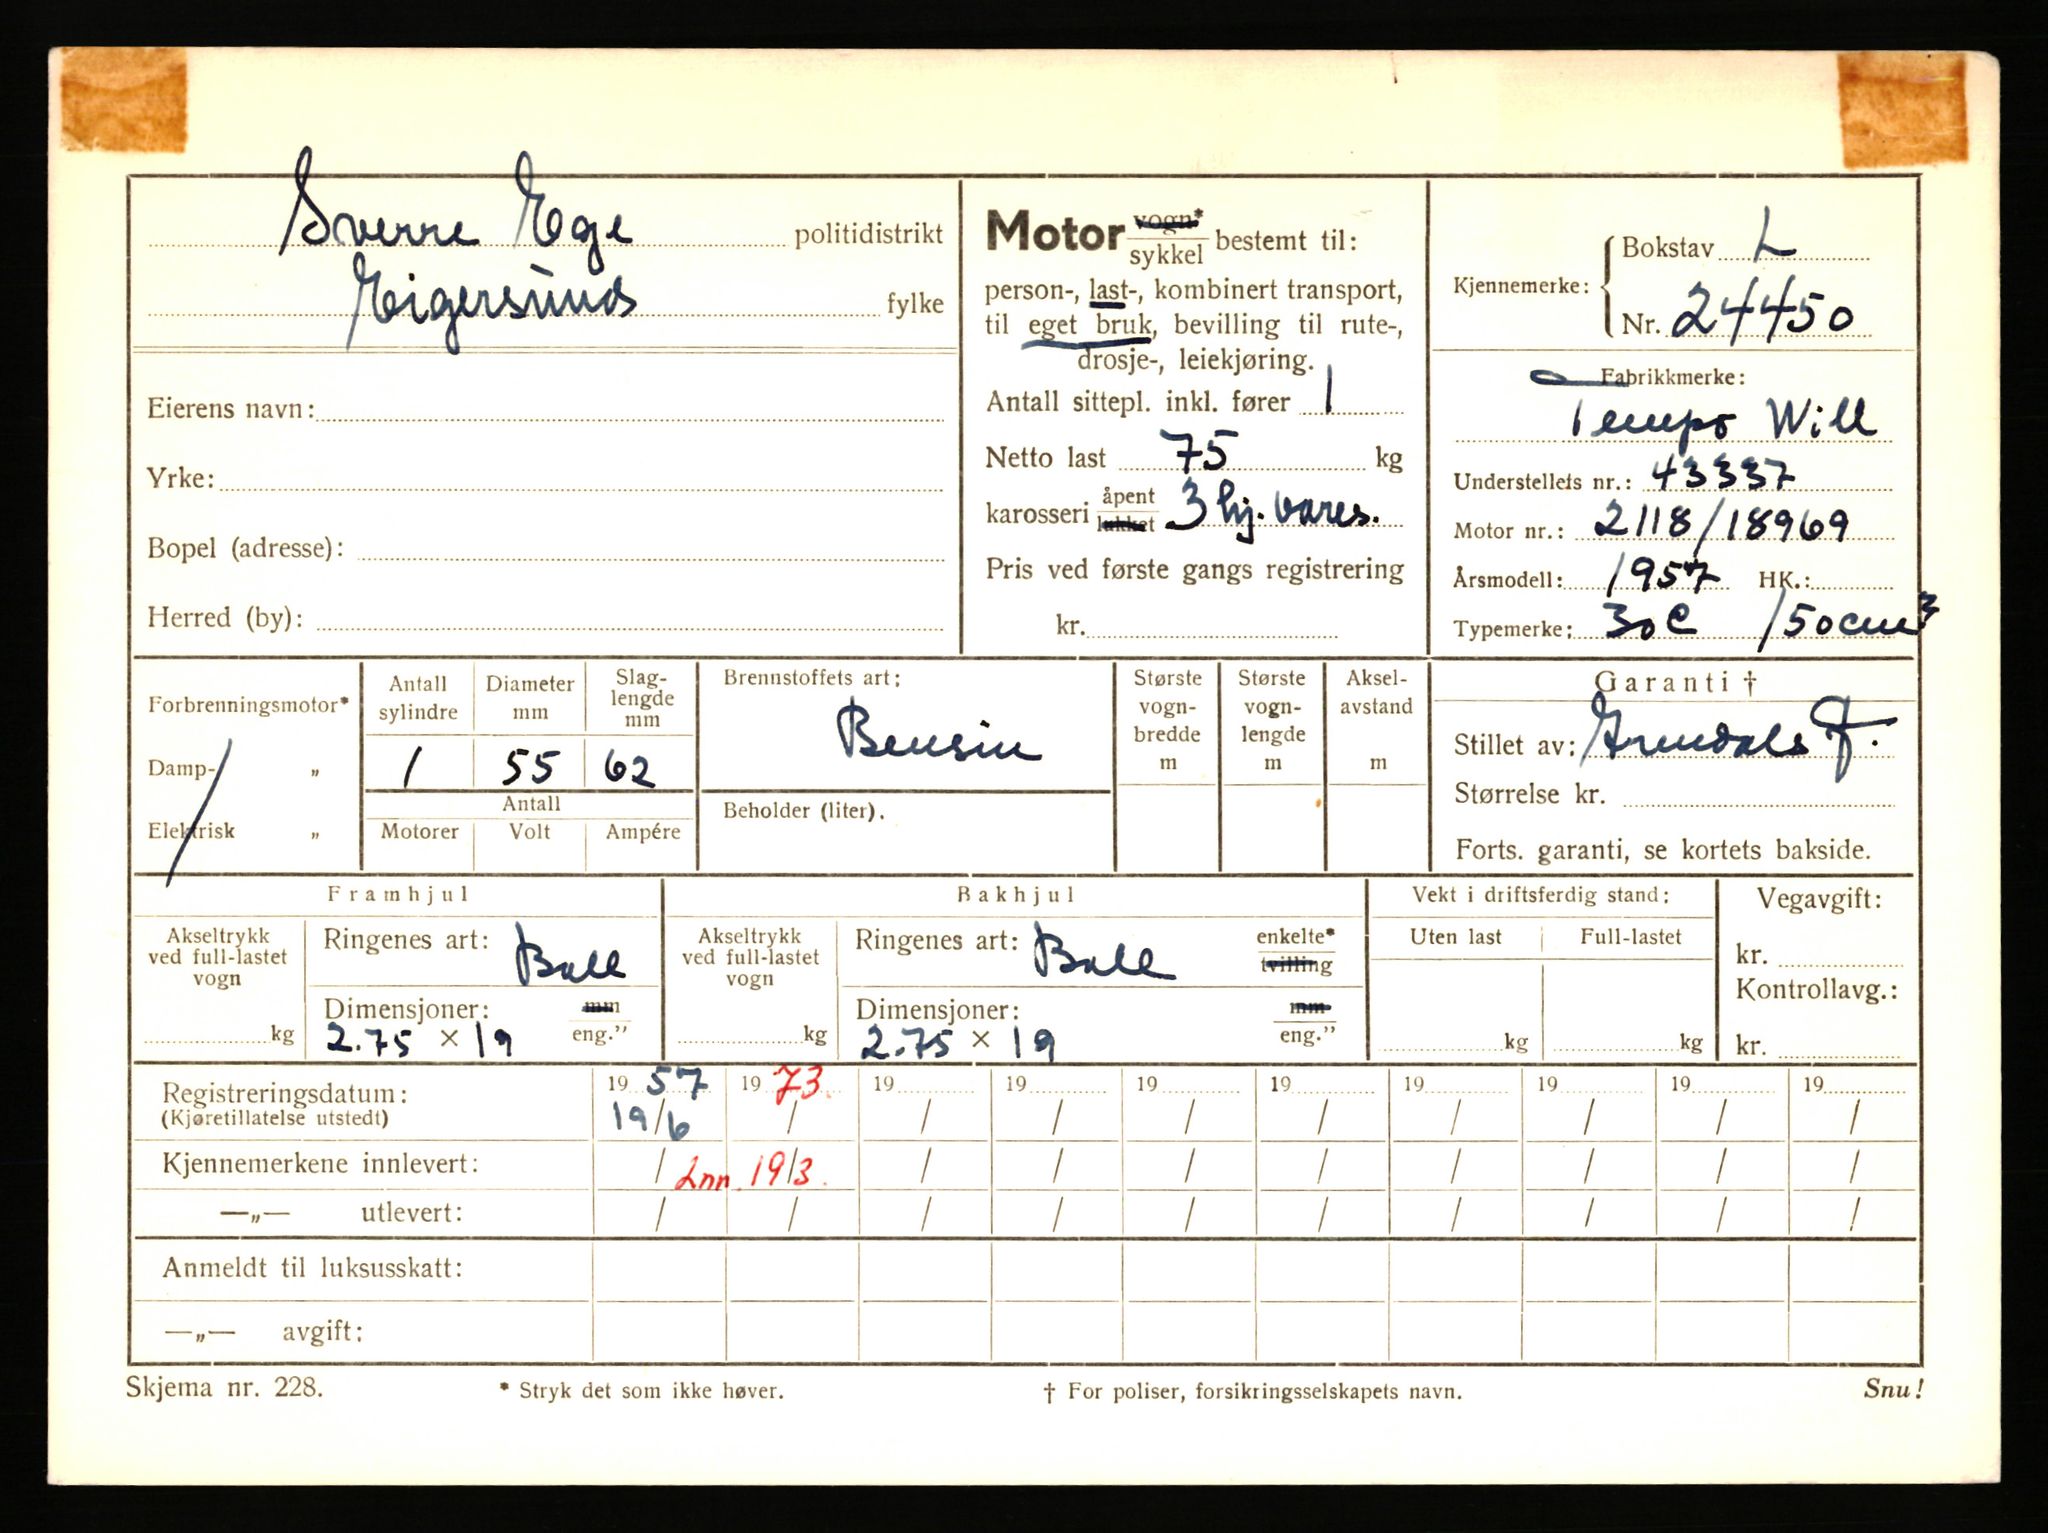 Sverre Ege politidistrikt
Eigersund fylke
Eierens navn:
Yrke:
Bopel (adresse):
Herred (by):
Motor vogn* / sykkel bestemt til:
person-, last-, kombinert transport,
til eget bruk, bevilling til rute-,
drosje-, leiekjøring.
Antall sittepl. inkl. fører 1
Netto last 75 kg
karosseri åpent / lukket 3 hj. vares.
Pris ved første gangs registrering
kr.
Kjennemerke: Bokstav L
Nr. 24450
Fabrikkmerke:
Tempo Will
Understellets nr.: 43337
Motor nr.: 2118/18969
Årsmodell: 1957 HK.:
Typemerke: 30 C 150 cm3
Forbrenningsmotor*
Damp- "
Elektrisk "
Antall sylindre Diameter mm Slag-lengde mm
1 55 62
Antall
Motorer Volt Ampére
Brennstoffets art:
Bensin
Beholder (liter).
Største vogn-bredde m
Største vogn-lengde m
Aksel-avstand m
Garanti †
Stillet av:
Størrelse kr.
Forts. garanti, se kortets bakside.
Framhjul
Akseltrykk ved full-lastet vogn kg
Ringenes art: Ball
Dimensjoner: mm / eng."
2.75 × 19
Bakhjul
Akseltrykk ved full-lastet vogn kg
Ringenes art: Ball enkelte* / tvilling
Dimensjoner: mm / eng."
2.75 × 19
Vekt i driftsferdig stand:
Uten last Full-lastet
kg kg
Vegavgift:
kr.
Kontrollavg.:
kr.
Registreringsdatum: 19 57 19 73 19 19 19 19 19 19 19 19
(Kjøretillatelse utstedt) 19/6 / / / / / / / / /
Kjennemerkene innlevert: / Inn. 19/3. / / / / / / / /
—„— utlevert: / / / / / / / / / /
Anmeldt til luksusskatt:
—„— avgift:
Skjema nr. 228. * Stryk det som ikke høver. † For poliser, forsikringsselskapets navn. Snu!